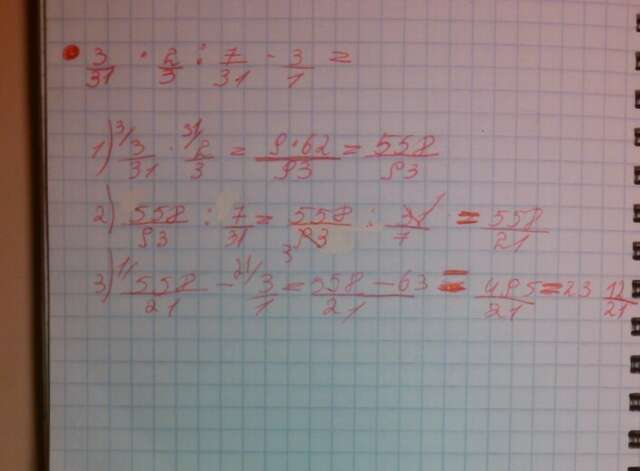 3/31 · 2/3 : 7/31 - 3/1 =
1) 3/ 3/31 · 31/ 2/3 = 9·62/93 = 558/93
2) 558/93 : 7/31 = 558/93 3 : 31/7 = 558/21
3) 1/ 558/21 - 21/ 3/1 = 558-63/21 = 495/21 = 23 12/21